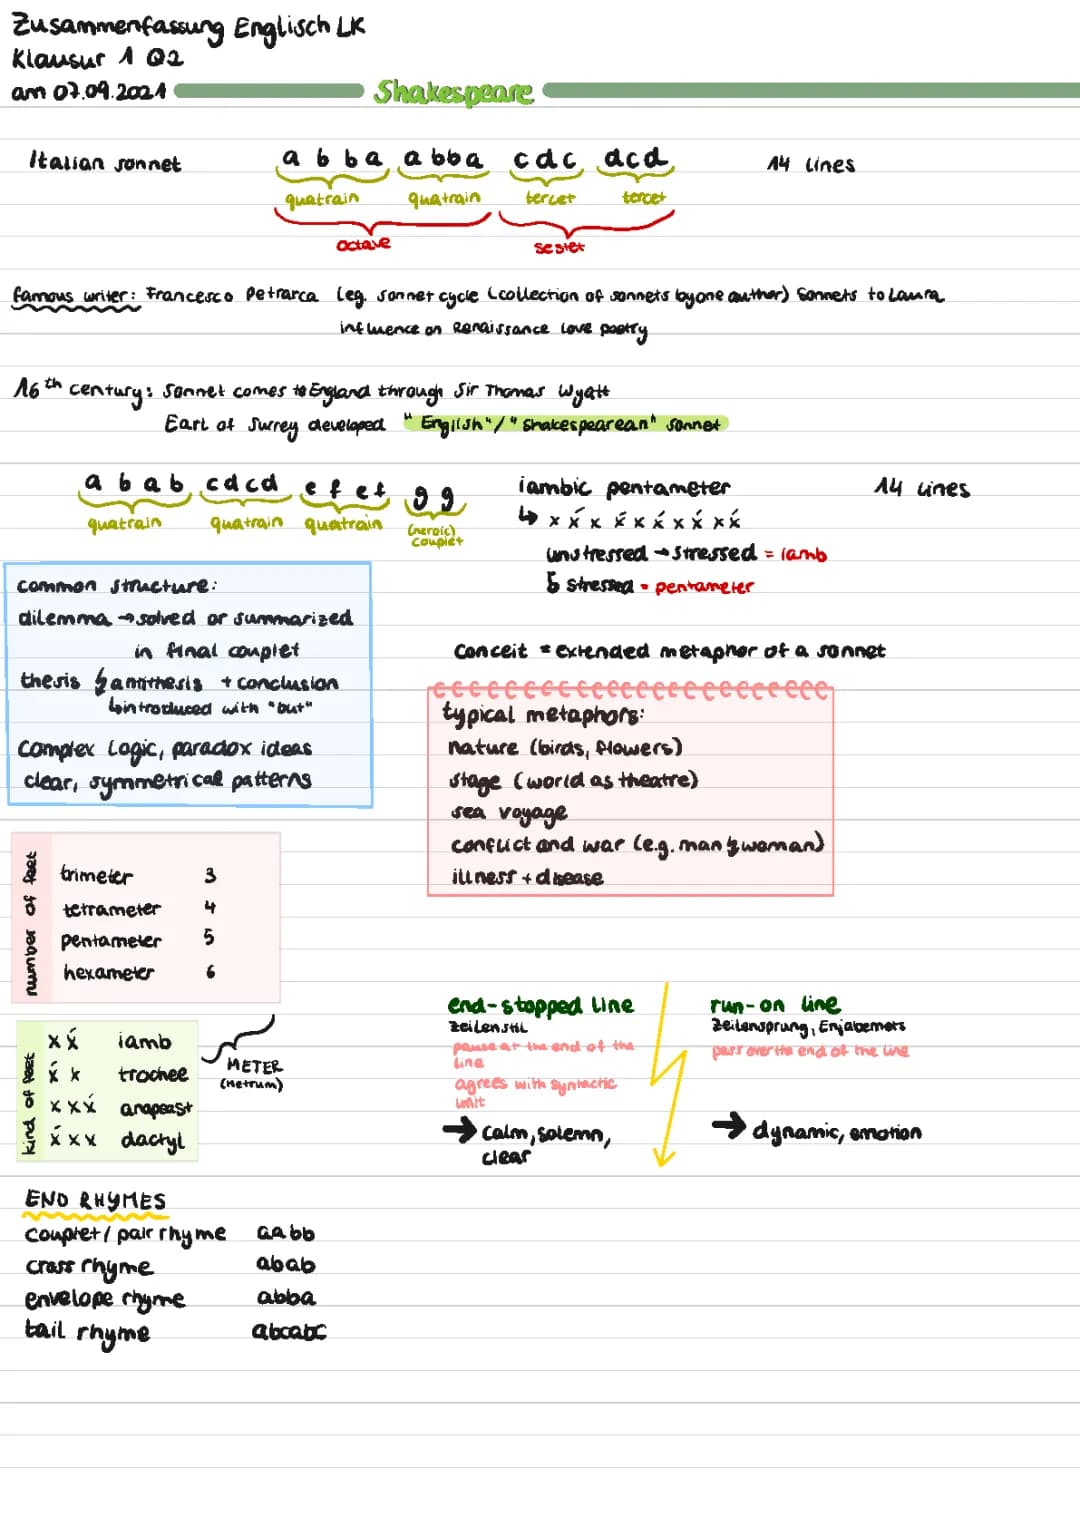 Zusammenfassung Englisch LK
Klausur 1 Q2
am 07.09.2021
Shakespeare
Italian sonnet
a b b a a b b a c d c d c d
14 lines
quatrain quatrain tercet tercet
octave sestet
famous writer: Francesco Petrarca (eg. sonnet cycle (collection of sonnets by one author) Sonnets to Laura
influence on Renaissance love poetry
16th century: Sonnet comes to England through Sir Thomas Wyatt
Earl of Surrey developed "English"/"Shakespearean" sonnet
a b a b c d c d e f e f g g
quatrain quatrain quatrain (heroic) couplet
iambic pentameter
14 lines
↳ x x́ x x́ x x́ x x́ x x́
unstressed → stressed = iamb
5 stressed = pentameter
common structure:
dilemma → solved or summarized
in final couplet
thesis ↯ antithesis + conclusion
↳ introduced with "but"
complex logic, paradox ideas
clear, symmetrical patterns
conceit = extended metaphor of a sonnet
typical metaphors:
nature (birds, flowers)
stage (world as theatre)
sea voyage
conflict and war (e.g. man ↯ woman)
illness + disease
number of feet
trimeter 3
tetrameter 4
pentameter 5
hexameter 6
kind of feet
x x́ iamb
x́ x trochee
x x x́ anapeast
x́ x x dactyl
METER
(Metrum)
end-stopped line
Zeilenstil
pause at the end of the
line
agrees with syntactic
unit
→ calm, solemn,
clear
run-on line
Zeilensprung, Enjabemets
pass over the end of the line
→ dynamic, emotion
END RHYMES
couplet / pair rhyme aabb
cross rhyme abab
envelope rhyme abba
tail rhyme abcabc